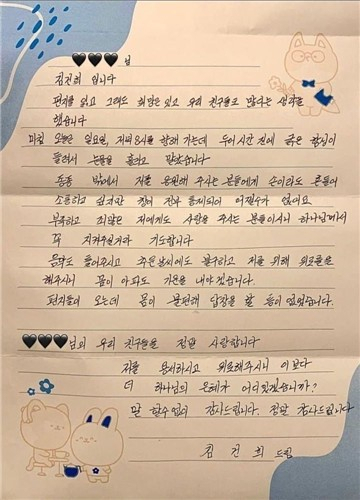 🖤🖤🖤님
김건희 입니다
편지를 읽고 그래도 희망은 있고 우리 친구들도 많다는 생각을
했습니다
오늘은 일요일, 저녁 8시를 향해 가는데 두어시간 전에 굵은 함성이
들려서 눈물을 흘리고 말았습니다
종종 밖에서 저를 응원해 주시는 분들에게 손이라도 흔들어
소통하고 싶지만 창이 전부 통제되어 어쩔수가 없어요
부족하고 죄많은 저에게도 사랑을 주시는 분들이시니 하나님께서
꼭 지켜주실거라 기도합니다
들어주시고 추운날씨에도 불구하고 저를 위해 위로를
해주시니 몸이 아파도 기운을 내야겠습니다.
편지들이 오는데 몸이 불편해 답장을 할 통이 없었습니다.
🖤🖤🖤님의 우리 친구들을 정말 사랑합니다
저를 용서하시고 위로해주시니 이보다
더 하나님의 은혜가 어디있겠습니까?
말 할수없이 감사드립니다. 정말 감사드립니다
김건희 드림